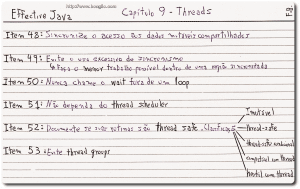 Effective Java
Capítulo 9 - Threads
Item 48: Sincronize o acesso aos dados mutáveis compartilhados
Item 49: Evite o uso excessivo de sincronismo
Faça o menor trabalho possível dentro de uma região sincronizada
Item 50: Nunca chame o wait fora de um loop
Item 51: Não dependa do thread scheduler
Item 52: Documente se suas rotinas são thread safe. Classificação
Imutável
thread-safe
thread-safe condicional
compatível com thread
hostil com thread
Item 53: Evite thread groups